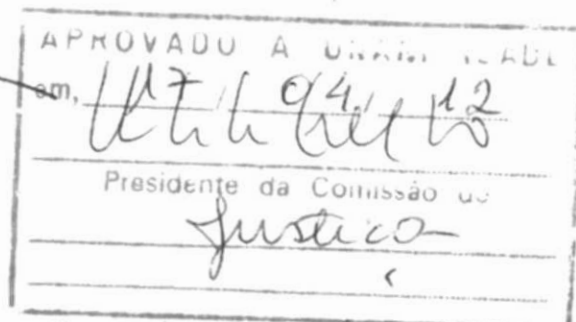 APROVADO A
em, 17 / 04 / 12
Presidente da Comissão de
Justiça